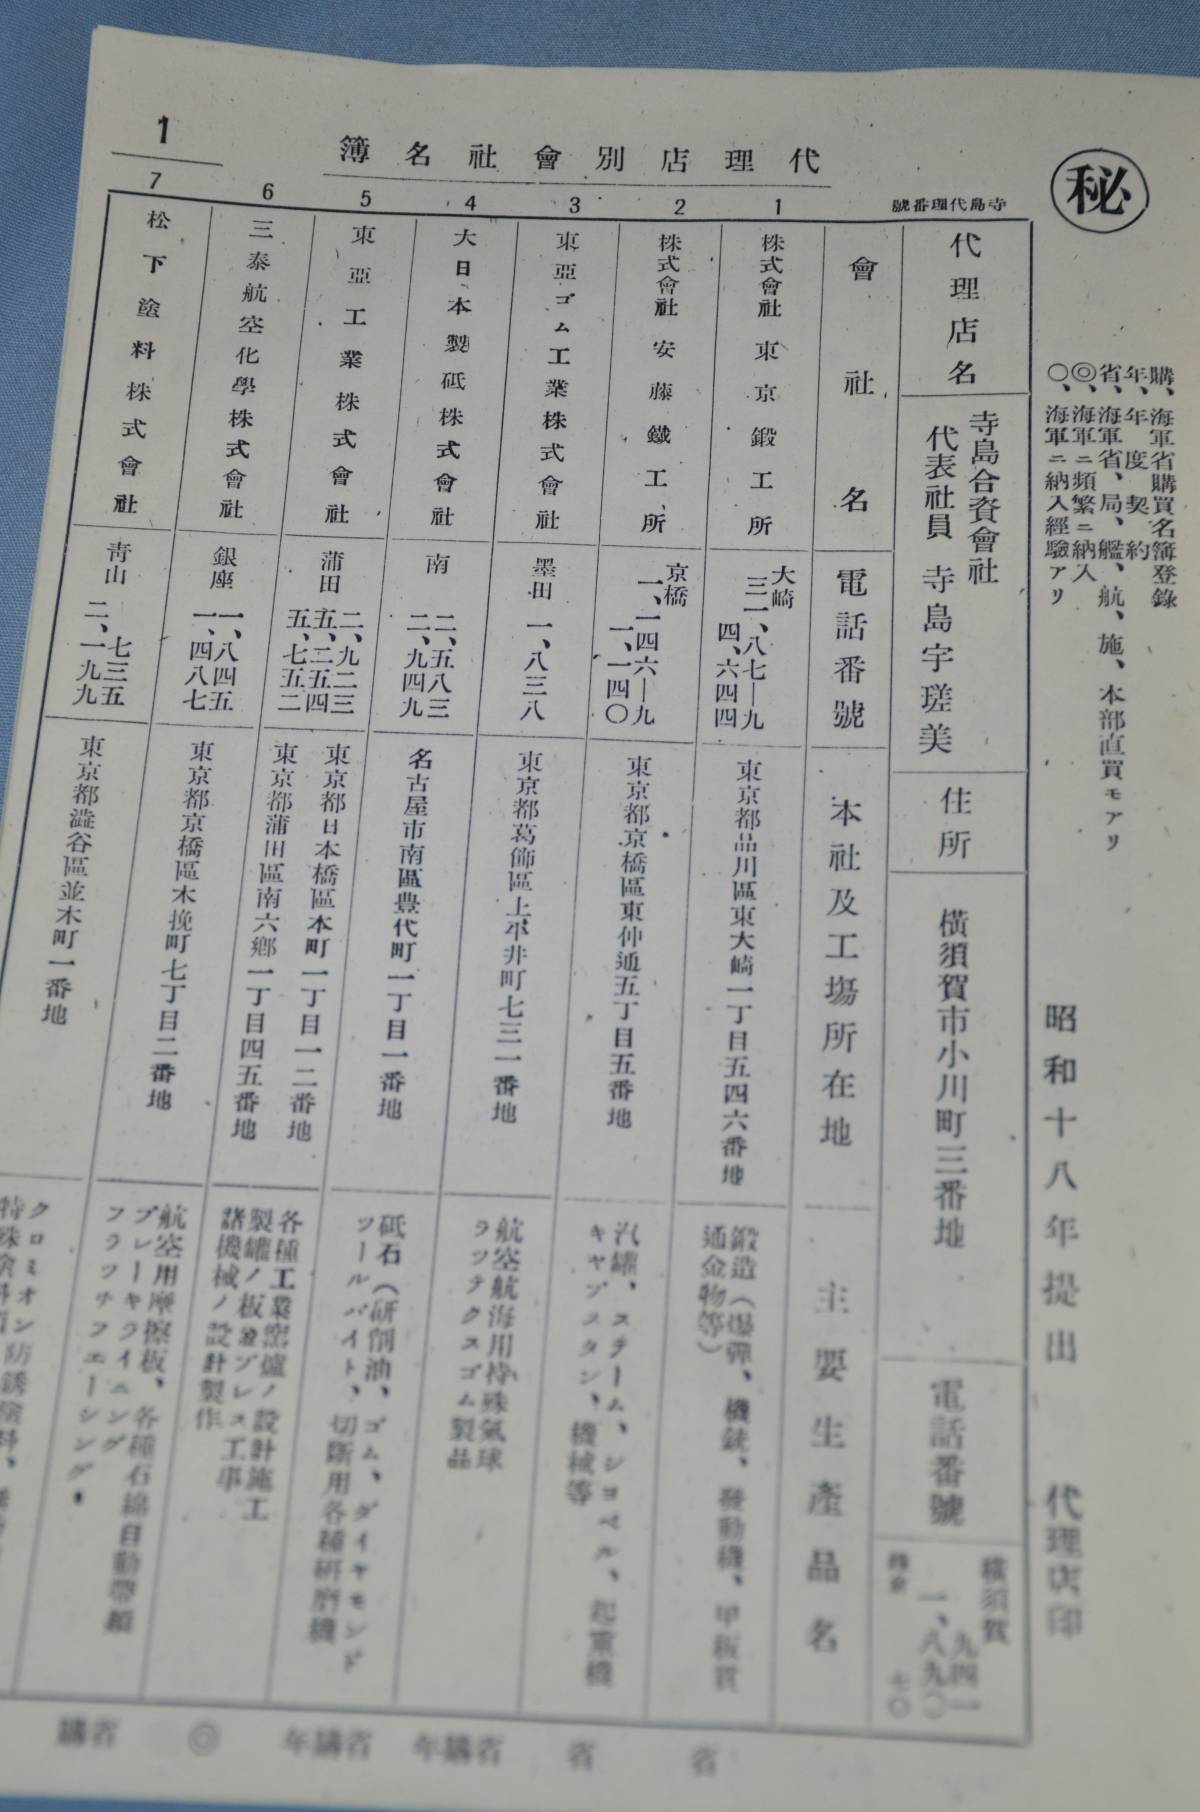 秘
購、海軍省購買名簿登錄
年、年度契約
省、海軍省、局、艦、航、施、本部直買モアリ
◎、海軍ニ頻繁ニ納入
〇、海軍ニ納入經驗アリ
昭和十八年提出
代理店印
代理店別會社名簿
1
寺島代理番號
代理店名
寺島合資會社
代表社員 寺島宇瑳美
住所
橫須賀市小川町三番地
電話番號
橫須賀
九四一
一、八九〇
七〇
會社名
電話番號
本社及工場所在地
主要生產品名
1
株式會社東京鍛工所
大崎
三一、八七―九
四、六四四
東京都品川區東大崎一丁目五四六番地
鍛造(爆彈、機銃、發動機、甲板貫
通金物等)
省
2
株式會社安藤鐵工所
京橋
一、一四六―九
一、一四〇
東京都京橋區東仲通五丁目五番地
汽罐、スチーム、ショベル、起重機
キャプスタン、機械等
省
3
東亞ゴム工業株式會社
墨田
一、八三八
東京都葛飾區上平井町七三一番地
航空航海用特殊氣球
ラツテクスゴム製品
省購年
4
大日本製砥株式會社
南
二、五八三
二、九四九
名古屋市南區豊代町一丁目一番地
砥石(研削油、ゴム、ダイヤモンド
ツールバイト、切斷用各種硏磨機
省購年
5
東亞工業株式會社
蒲田
二、九二三
五、二五四
五、七五二
東京都日本橋區本町一丁目一二番地
東京都蒲田區南六鄕一丁目四五番地
各種工業窯爐ノ設計施工
製罐ノ板金プレス工事
諸機械ノ設計製作
◎
6
三泰航空化學株式會社
銀座
一、八四五
一、四八七
東京都京橋區木挽町七丁目二番地
航空用摩擦板、各種石綿自動帶類
ブレーキライニング
フラツチフエーシング
省購
7
松下塗料株式會社
靑山
七三五
二、一九九
東京都澁谷區並木町一番地
クロミオン
防銹塗料、